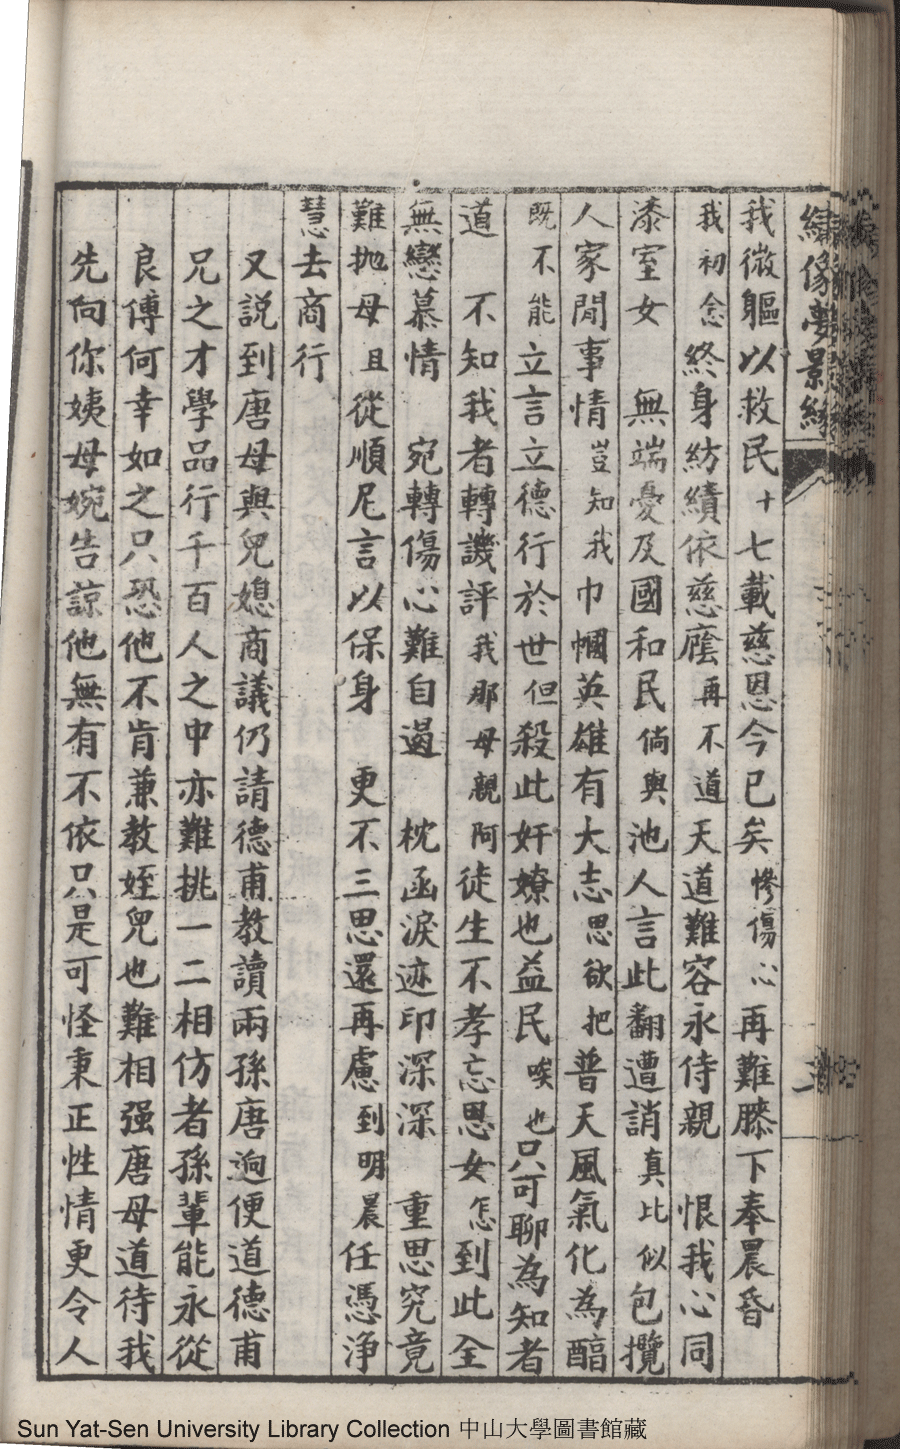 繡像夢景緣
我微軀以救民十七載慈恩今已矣慘傷心再難膝下奉晨昏
我初念終身紡績依慈蔭再不道天道難容永侍親 恨我心同
漆室女 無端憂及國和民倘與池人言此翻遭誚真比似包攬
人家閒事情豈知我巾幗英雄有大志思欲把普天風氣化為醕
既不能立言立德行於世但殺此奸嫽也益民唉也只可聊為知者
道 不知我者轉譏評我那母親阿徒生不孝忘恩女怎到此全
無戀慕情 宛轉傷心難自遏 枕函淚迹印深深 重思究竟
難抛母且從順尼言以保身 更不三思還再慮到明晨任憑淨
慧去商行
又説到唐母與兒媳商議仍請德甫教讀兩孫唐逈便道德甫
兄之才學品行千百人之中亦難挑一二相仿者孫輩能永從
良傅何幸如之只恐他不肯兼教姪兒也難相强唐母道待我
先向你姨母婉告諒他無有不依只是可怪秉正性情更令人
Sun Yat-Sen University Library Collection 中山大學圖書館藏